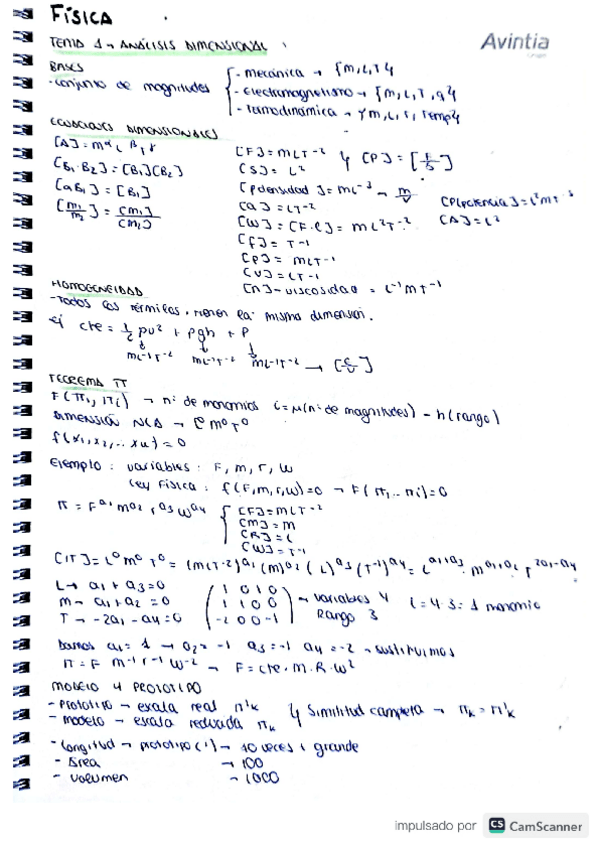 FÍSICA
TEMA 1 → ANÁLISIS DIMENSIONAL
Avintia
BASES
- Conjunto de magnitudes { - mecánica → {m, L, T}
- Electromagnetismo → {m, L, T, q}
- Termodinámica → {m, L, T, Temp}
ECUACIONES DIMENSIONALES
[A] = m^α L^β T^γ
[B₁·B₂] = [B₁][B₂]
[aB₁] = [B₁]
[m₁/m₂] = [m₁]/[m₂]
[F] = MLT⁻² y [P] = [F/S]
[S] = L²
[densidad] = ML⁻³ → m/V
[a] = LT⁻²
[W] = [F·l] = ML²T⁻²
[f] = T⁻¹
[p] = MLT⁻¹
[v] = LT⁻¹
[n] - viscosidad = L⁻¹MT⁻¹
[P(potencia)] = L²MT⁻³
[A] = L²
HOMOGENEIDAD
- Todos los términos tienen la misma dimensión.
ej cte = 1/2 ρv² + ρgh + P
ML⁻¹T⁻² ML⁻¹T⁻² ML⁻¹T⁻² →
TEOREMA π
F(π₁, πi) → nº de monomios i = n(nº de magnitudes) - h(rango)
DIMENSIÓN → L⁰M⁰T⁰
f(x₁, x₂, ... xn) = 0
Ejemplo: variables: F, m, r, w
Ley Física: f(F, m, r, w) = 0 → F(π₁...πi) = 0
π = F^a₁ m^a₂ r^a₃ w^a₄ { [F] = MLT⁻²
[M] = M
[R] = L
[W] = T⁻¹
[π] = L⁰M⁰T⁰ = (MLT⁻²)^a₁ (M)^a₂ (L)^a₃ (T⁻¹)^a₄ = L^a₁+a₃ M^a₁+a₂ T^-2a₁-a₄
L → a₁ + a₃ = 0
M → a₁ + a₂ = 0
T → -2a₁ - a₄ = 0
(1 0 1 0
1 1 0 0
-2 0 0 -1) → variables 4
Rango 3
i = 4-3 = 1 monomio
Damos a₁ = 1 → a₂ = -1 a₃ = -1 a₄ = -2 → sustituimos
π = F m⁻¹ r⁻¹ w⁻² → F = cte · M · R · w²
MODELO Y PROTOTIPO
- Prototipo → escala real π'k
- modelo → escala reducida πk
} Similitud completa → πk = π'k
- Longitud → prototipo (') → 10 veces + grande
- Área → 100
- Volumen → 1000
impulsado por CS CamScanner